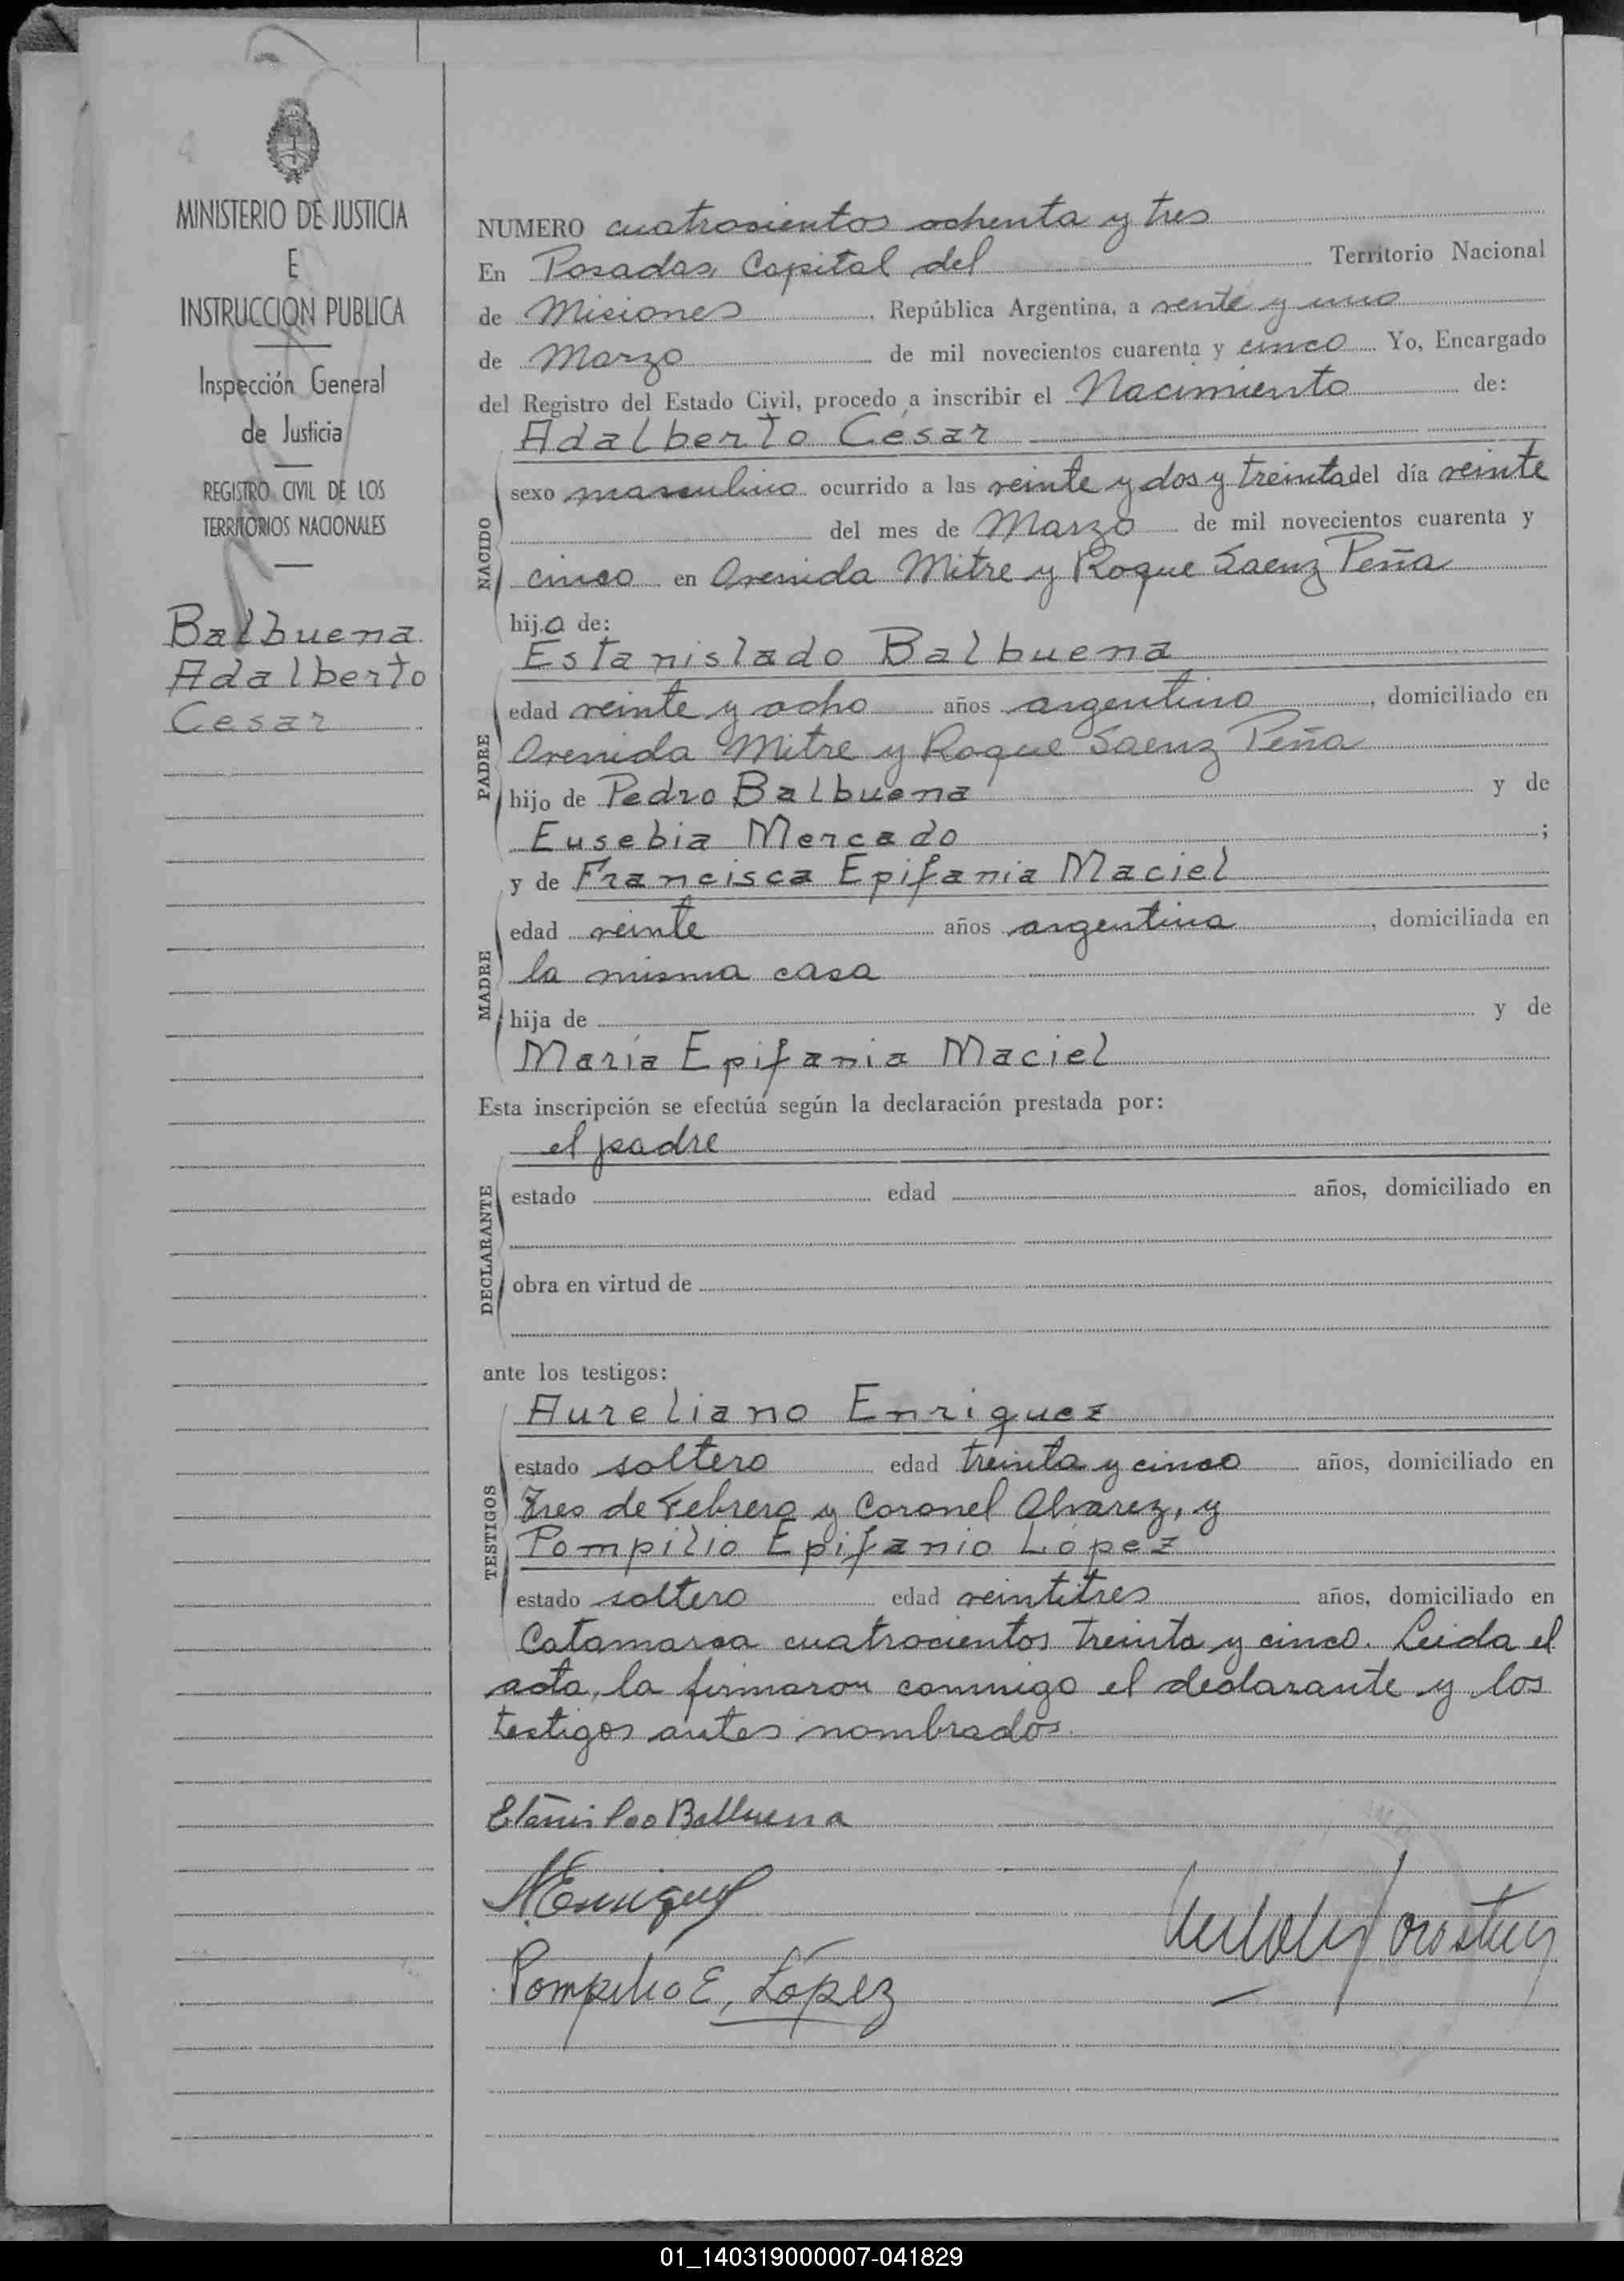 MINISTERIO DE JUSTICIA
E
INSTRUCCION PUBLICA
Inspección General
de Justicia
REGISTRO CIVIL DE LOS
TERRITORIOS NACIONALES
Balbuena
Adalberto
Cesar
NUMERO cuatrocientos ochenta y tres
En Posadas, Capital del Territorio Nacional
de Misiones, República Argentina, a veinte y uno
de Marzo de mil novecientos cuarenta y cinco Yo, Encargado
del Registro del Estado Civil, procedo a inscribir el Nacimiento de:
Adalberto César
NACIDO
sexo masculino ocurrido a las veinte y dos y treinta del día veinte
del mes de Marzo de mil novecientos cuarenta y
cinco en Avenida Mitre y Roque Saenz Peña
hijo de:
Estanislado Balbuena
PADRE
edad veinte y ocho años argentino, domiciliado en
Avenida Mitre y Roque Saenz Peña
hijo de Pedro Balbuena y de
Eusebia Mercado;
y de Francisca Epifania Maciel
MADRE
edad veinte años argentina, domiciliada en
la misma casa
hija de y de
María Epifania Maciel
Esta inscripción se efectúa según la declaración prestada por:
el padre
DECLARANTE
estado edad años, domiciliado en
obra en virtud de
ante los testigos:
Aureliano Enriquez
TESTIGOS
estado soltero edad treinta y cinco años, domiciliado en
Tres de Febrero y Coronel Alvarez, y
Pompilio Epifanio López
estado soltero edad veintitres años, domiciliado en
Catamarca cuatrocientos treinta y cinco. Leida el
acta, la firmaron conmigo el declarante y los
testigos antes nombrados.
Balbuena
AEnriquez
Pompilio E, López
01_140319000007-041829